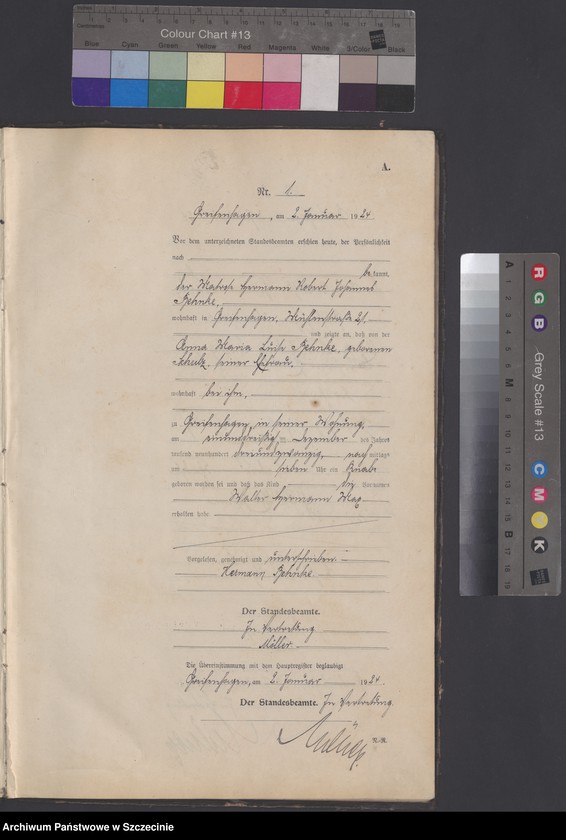 Colour Chart #13
Blue Cyan Green Yellow Red Magenta White 3/Color Black
A.
Nr. 1.
Greifenhagen, am 2. Januar 1924
Vor dem unterzeichneten Standesbeamten erschien heute, der Persönlichkeit
nach
bekannt,
der Hermann Robert Johannes
Behnke,
wohnhaft in Greifenhagen, Mühlenstraße 21.
und zeigte an, daß von der
Anna Maria Luise Behnke, geborenen
Schulz, seiner Ehefrau,
wohnhaft bei ihm,
zu Greifenhagen, in seiner Wohnung,
am einunddreißigsten Dezember des Jahres
tausend neunhundert dreiundzwanzig, nachmittags
um sieben Uhr ein Knabe
geboren worden sei und daß das Kind die Vornamen
Walter Hermann Max
erhalten habe.
Vorgelesen, genehmigt und unterschrieben
Hermann Behnke
Der Standesbeamte.
In Vertretung
Möller
Die Übereinstimmung mit dem Hauptregister beglaubigt
Greifenhagen, am 2. Januar 1924.
Der Standesbeamte. In Vertretung.
Grey Scale #13
A 1 2 3 4 5 6 M 8 9 10 11 12 13 14 15 B 17 18 19
R G B
C M Y K
Archiwum Państwowe w Szczecinie